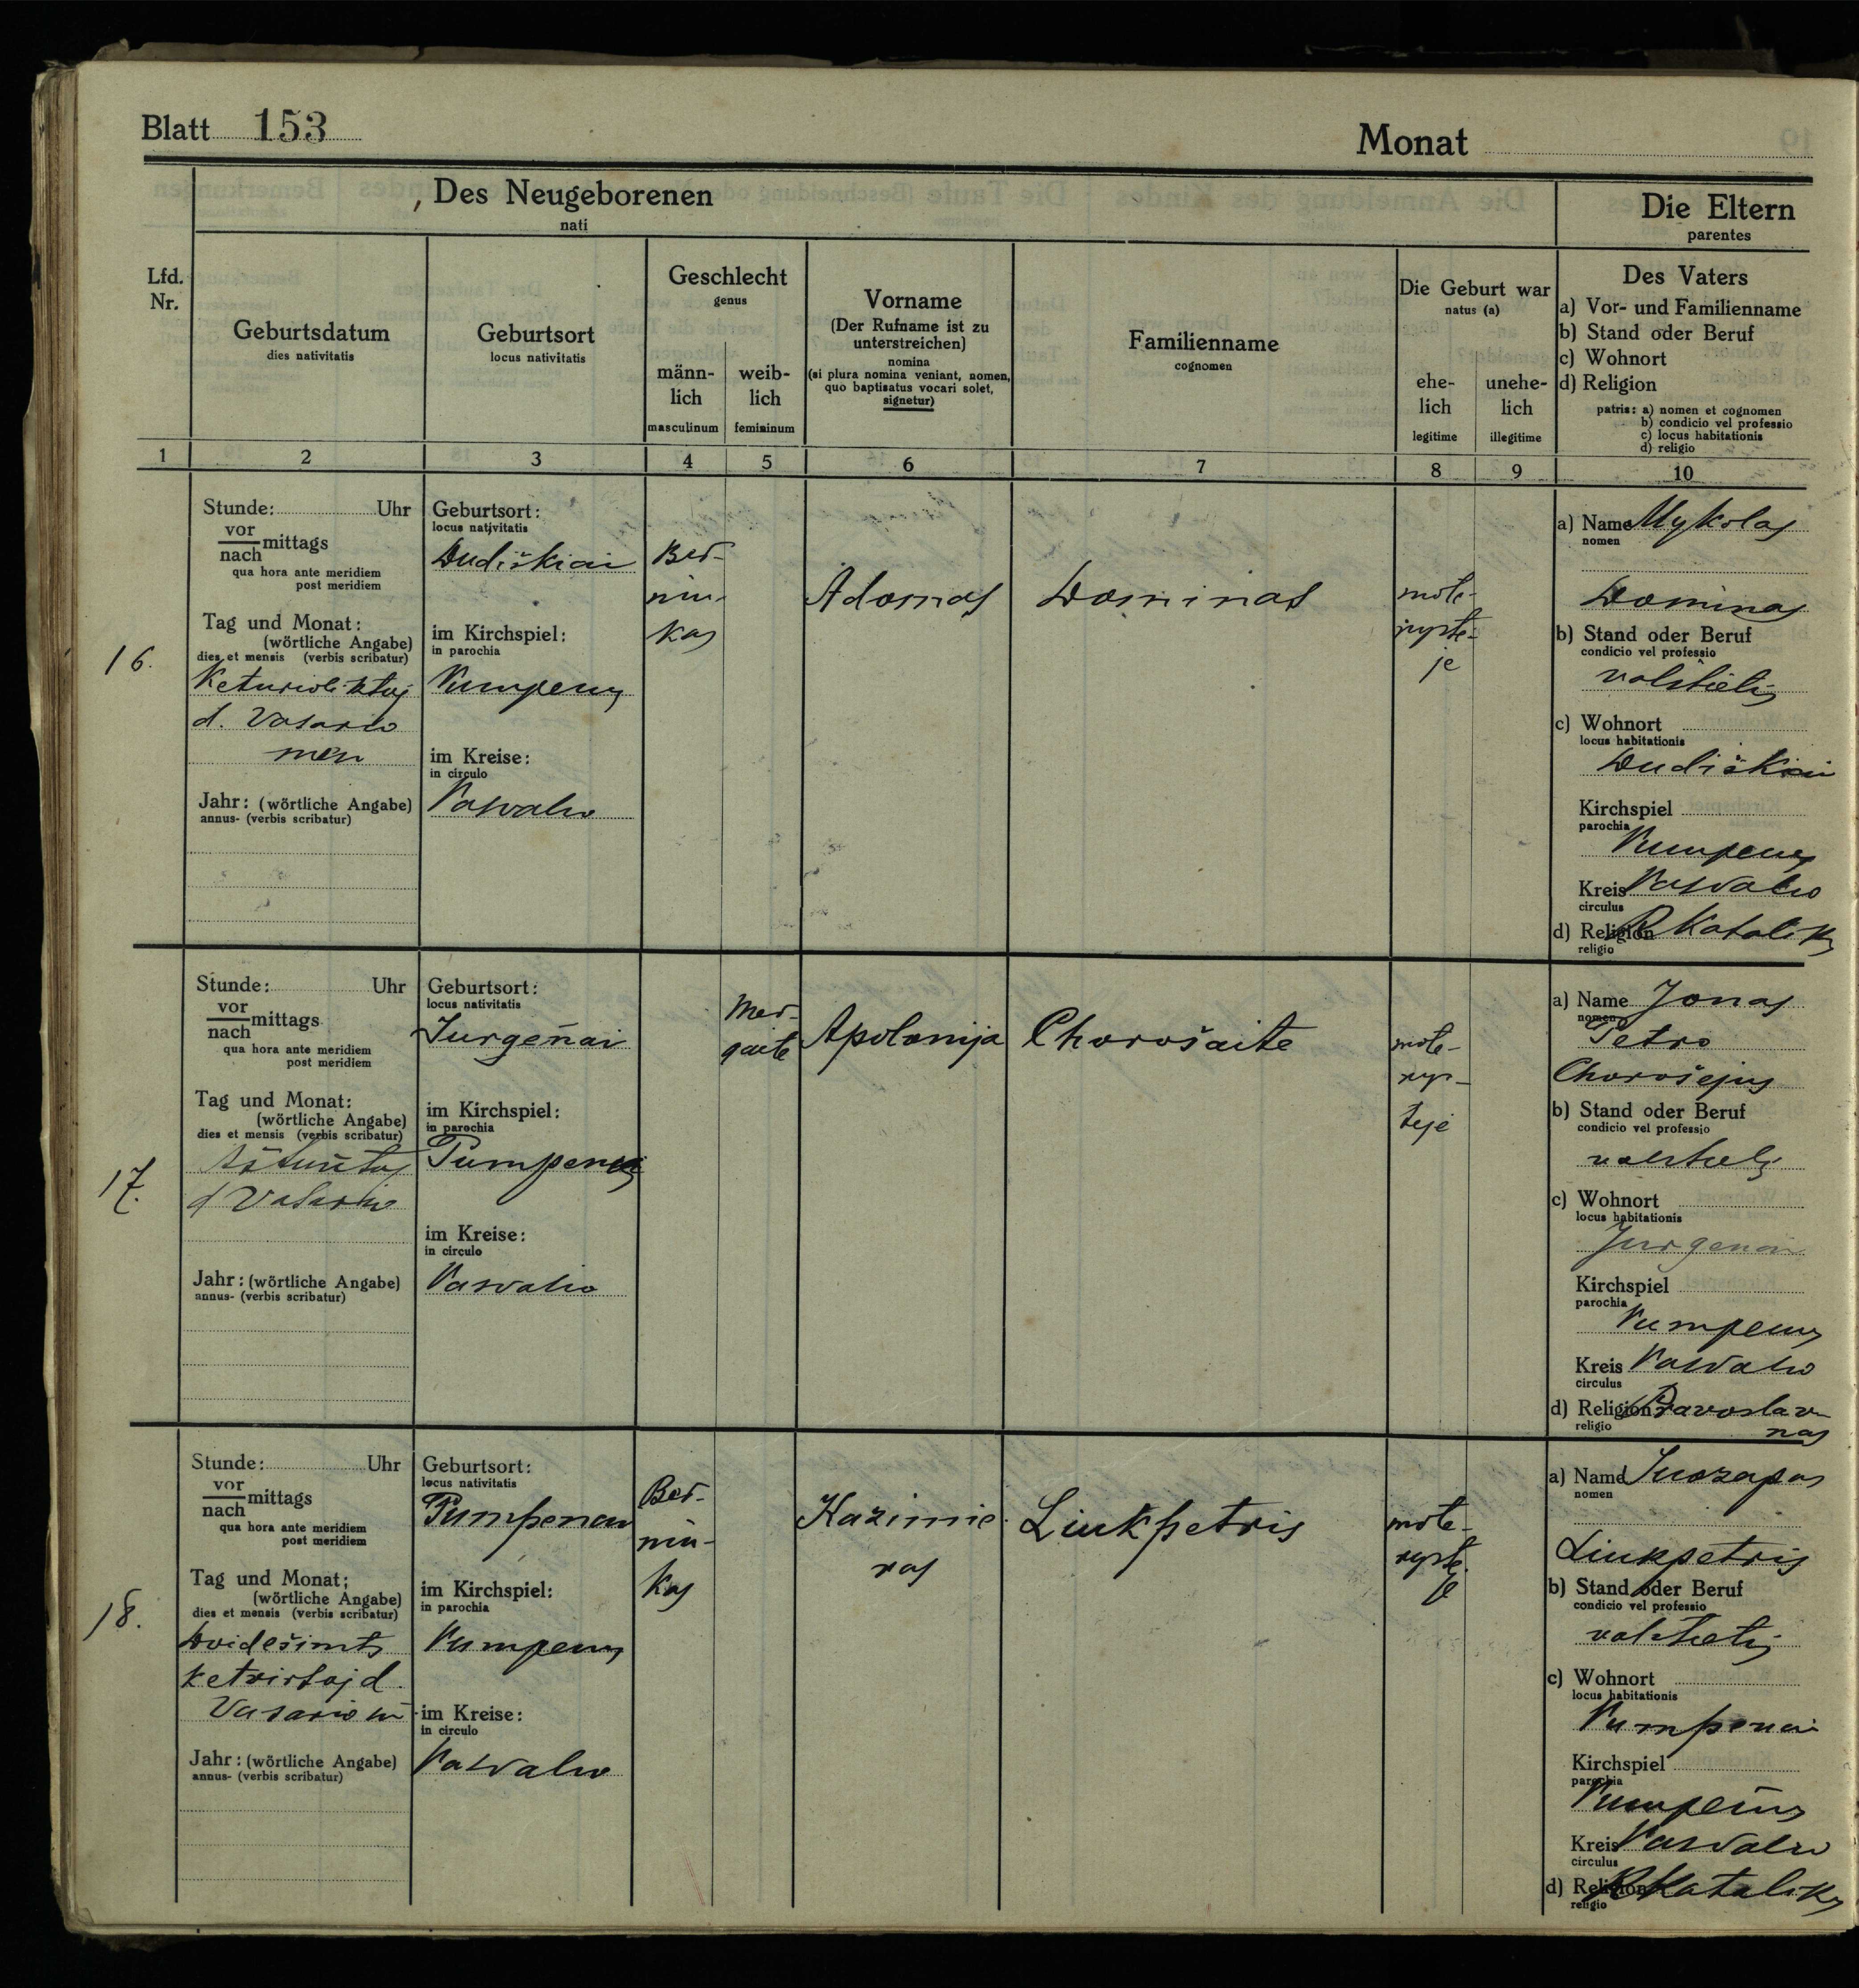 Blatt 153
Monat
Des Neugeborenen
nati
Die Eltern
parentes
Lfd.
Nr.
Geburtsdatum
dies nativitatis
Geburtsort
locus nativitatis
Geschlecht
genus
männ-
lich
masculinum
weib-
lich
femininum
Vorname
(Der Rufname ist zu
unterstreichen)
nomina
(si plura nomina veniant, nomen,
quo baptisatus vocari solet,
signetur)
Familienname
cognomen
Die Geburt war
natus (a)
ehe-
lich
legitime
unehe-
lich
illegitime
Des Vaters
a) Vor- und Familienname
b) Stand oder Beruf
c) Wohnort
d) Religion
patris: a) nomen et cognomen
b) condicio vel professio
c) locus habitationis
d) religio
1 2 3 4 5 6 7 8 9 10
16.
Stunde: Uhr
vor
nach mittags
qua hora ante meridiem
post meridiem
Tag und Monat:
(wörtliche Angabe)
dies et mensis (verbis scribatur)
Keturioliktoj
d. Vasario
men
Jahr: (wörtliche Angabe)
annus- (verbis scribatur)
Geburtsort:
locus nativitatis
Dudiškiai
im Kirchspiel:
in parochia
Pumpenų
im Kreise:
in circulo
Pasvalio
Ber-
niu-
kas
Adomas
Dominas
mote-
ryste-
je
a) Name Mykolas
nomen
Dominas
b) Stand oder Beruf
condicio vel professio
valstietis
c) Wohnort
locus habitationis
Dudiškiai
Kirchspiel
parochia
Pumpenų
Kreis Pasvalio
circulus
d) Religion R Katalikų
religio
17.
Stunde: Uhr
vor
nach mittags
qua hora ante meridiem
post meridiem
Tag und Monat:
(wörtliche Angabe)
dies et mensis (verbis scribatur)
Aštuntoj
d Vasario
Jahr: (wörtliche Angabe)
annus- (verbis scribatur)
Geburtsort:
locus nativitatis
Jurgenai
im Kirchspiel:
in parochia
Pumpenų
im Kreise:
in circulo
Pasvalio
Mer-
gaite
Apolonija
Chorošaite
mote-
rys-
teje
a) Name Jonas
nomen
Petro
Chorošejus
b) Stand oder Beruf
condicio vel professio
valstietis
c) Wohnort
locus habitationis
Jurgenai
Kirchspiel
parochia
Pumpenų
Kreis Pasvalio
circulus
d) Religion Pravoslav
religio
nas
18.
Stunde: Uhr
vor
nach mittags
qua hora ante meridiem
post meridiem
Tag und Monat:
(wörtliche Angabe)
dies et mensis (verbis scribatur)
Dvidešimts
ketvirtoj d.
Vasario m
Jahr: (wörtliche Angabe)
annus- (verbis scribatur)
Geburtsort:
locus nativitatis
Pumpenai
im Kirchspiel:
in parochia
Pumpenų
im Kreise:
in circulo
Pasvalio
Ber-
niu-
kas
Kazimie-
ras
Linkpetris
mote-
ryste
je
a) Name Juozapas
nomen
Linkpetris
b) Stand oder Beruf
condicio vel professio
valstietis
c) Wohnort
locus habitationis
Pumpenai
Kirchspiel
parochia
Pumpenų
Kreis Pasvalio
circulus
d) Religion R Katalikų
religio